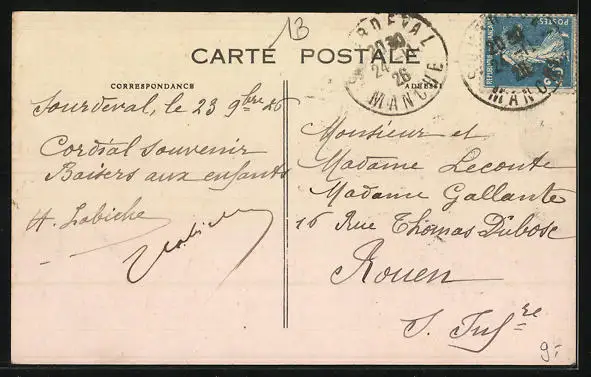 1B
CARTE POSTALE
CORRESPONDANCE
ADRESSE
Sourdeval, le 23 9bre 26
Cordial souvenir
Baisers aux enfants
H. Labiche
Labiche
Monsieur et
Madame Leconte
Madame Gallante
16 Rue Thomas Dubosc
Rouen
S. Infre
SOURDEVAL
20 30
24
26
MANCHE
MANCHE
9.-